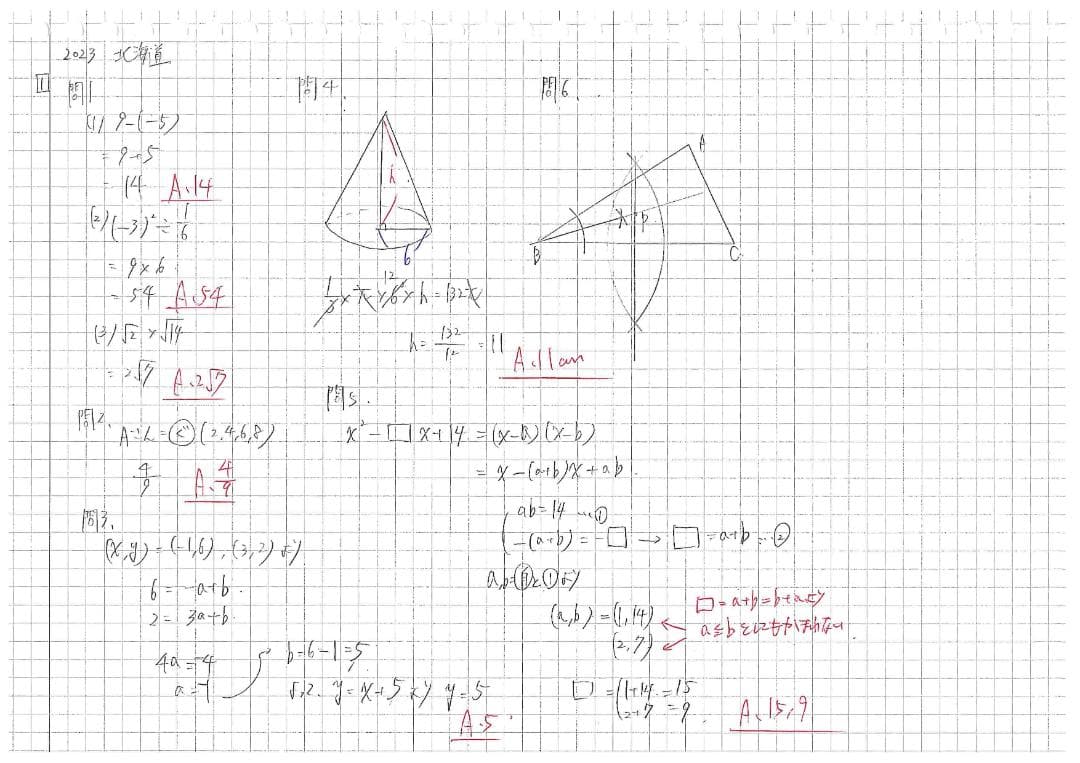 2023 北海道
1
問1
(1) 9-(-5)
= 9+5
= 14 A.14
(2) (-3)² ÷ 1/6
= 9×6
= 54 A.54
(3) √2 × √14
= 2√7 A.2√7
問2.
(2,4,6,8)
4/9 A.4/9
問3.
(x,y)=(-1,6),(3,2)より
6=-a+b.
2=3a+b.
4a=-4
a=-1
b=6-1=5
y=x+5より y=5
A.5
問4.
h
6
1/3×π×6²×h=132π
12
h=132/12=11
A.11cm
問5.
x²-□x+14=(x-a)(x-b)
=x-(a+b)x+ab
ab=14 …①
-(a+b)=-□→□=a+b…②
(a,b)=(1,14)
(2,7)
□=a+b=b+aより
a≦bとしてもかまわない.
□=1+14=15
2+7=9.
A.15,9
問6.
A
P
B
C